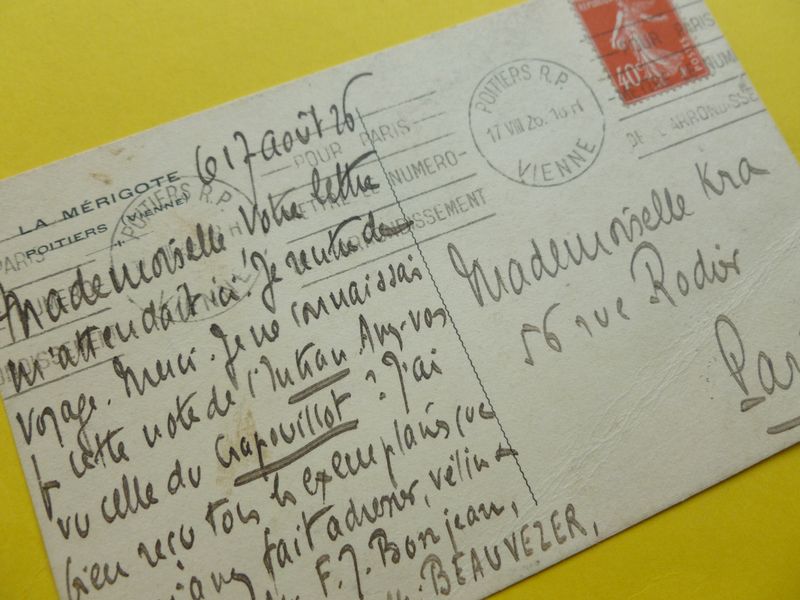 LA MÉRIGOTE
POITIERS (VIENNE)
17 août 26
Mademoiselle Votre lettre
m'attendait ici. Je rentre de
voyage. Merci. Je ne connaissais
cette note de l'Intran. Avez-vous
vu celle du Crapouillot? J'ai
bien reçu tous les exemplaires que
fait adresser, vélin
F. J. Bonjean,
BEAUVEZER,
POITIERS R.P.
17 VIII 26. 16 H
VIENNE
POUR PARIS
METTRE LE NUMERO
DE L'ARRONDISSEMENT
POITIERS R.P.
VIENNE
POUR PARIS
DE L'ARRONDISSE
40c
POSTES
Mademoiselle Kra
56 rue Rodier
Par